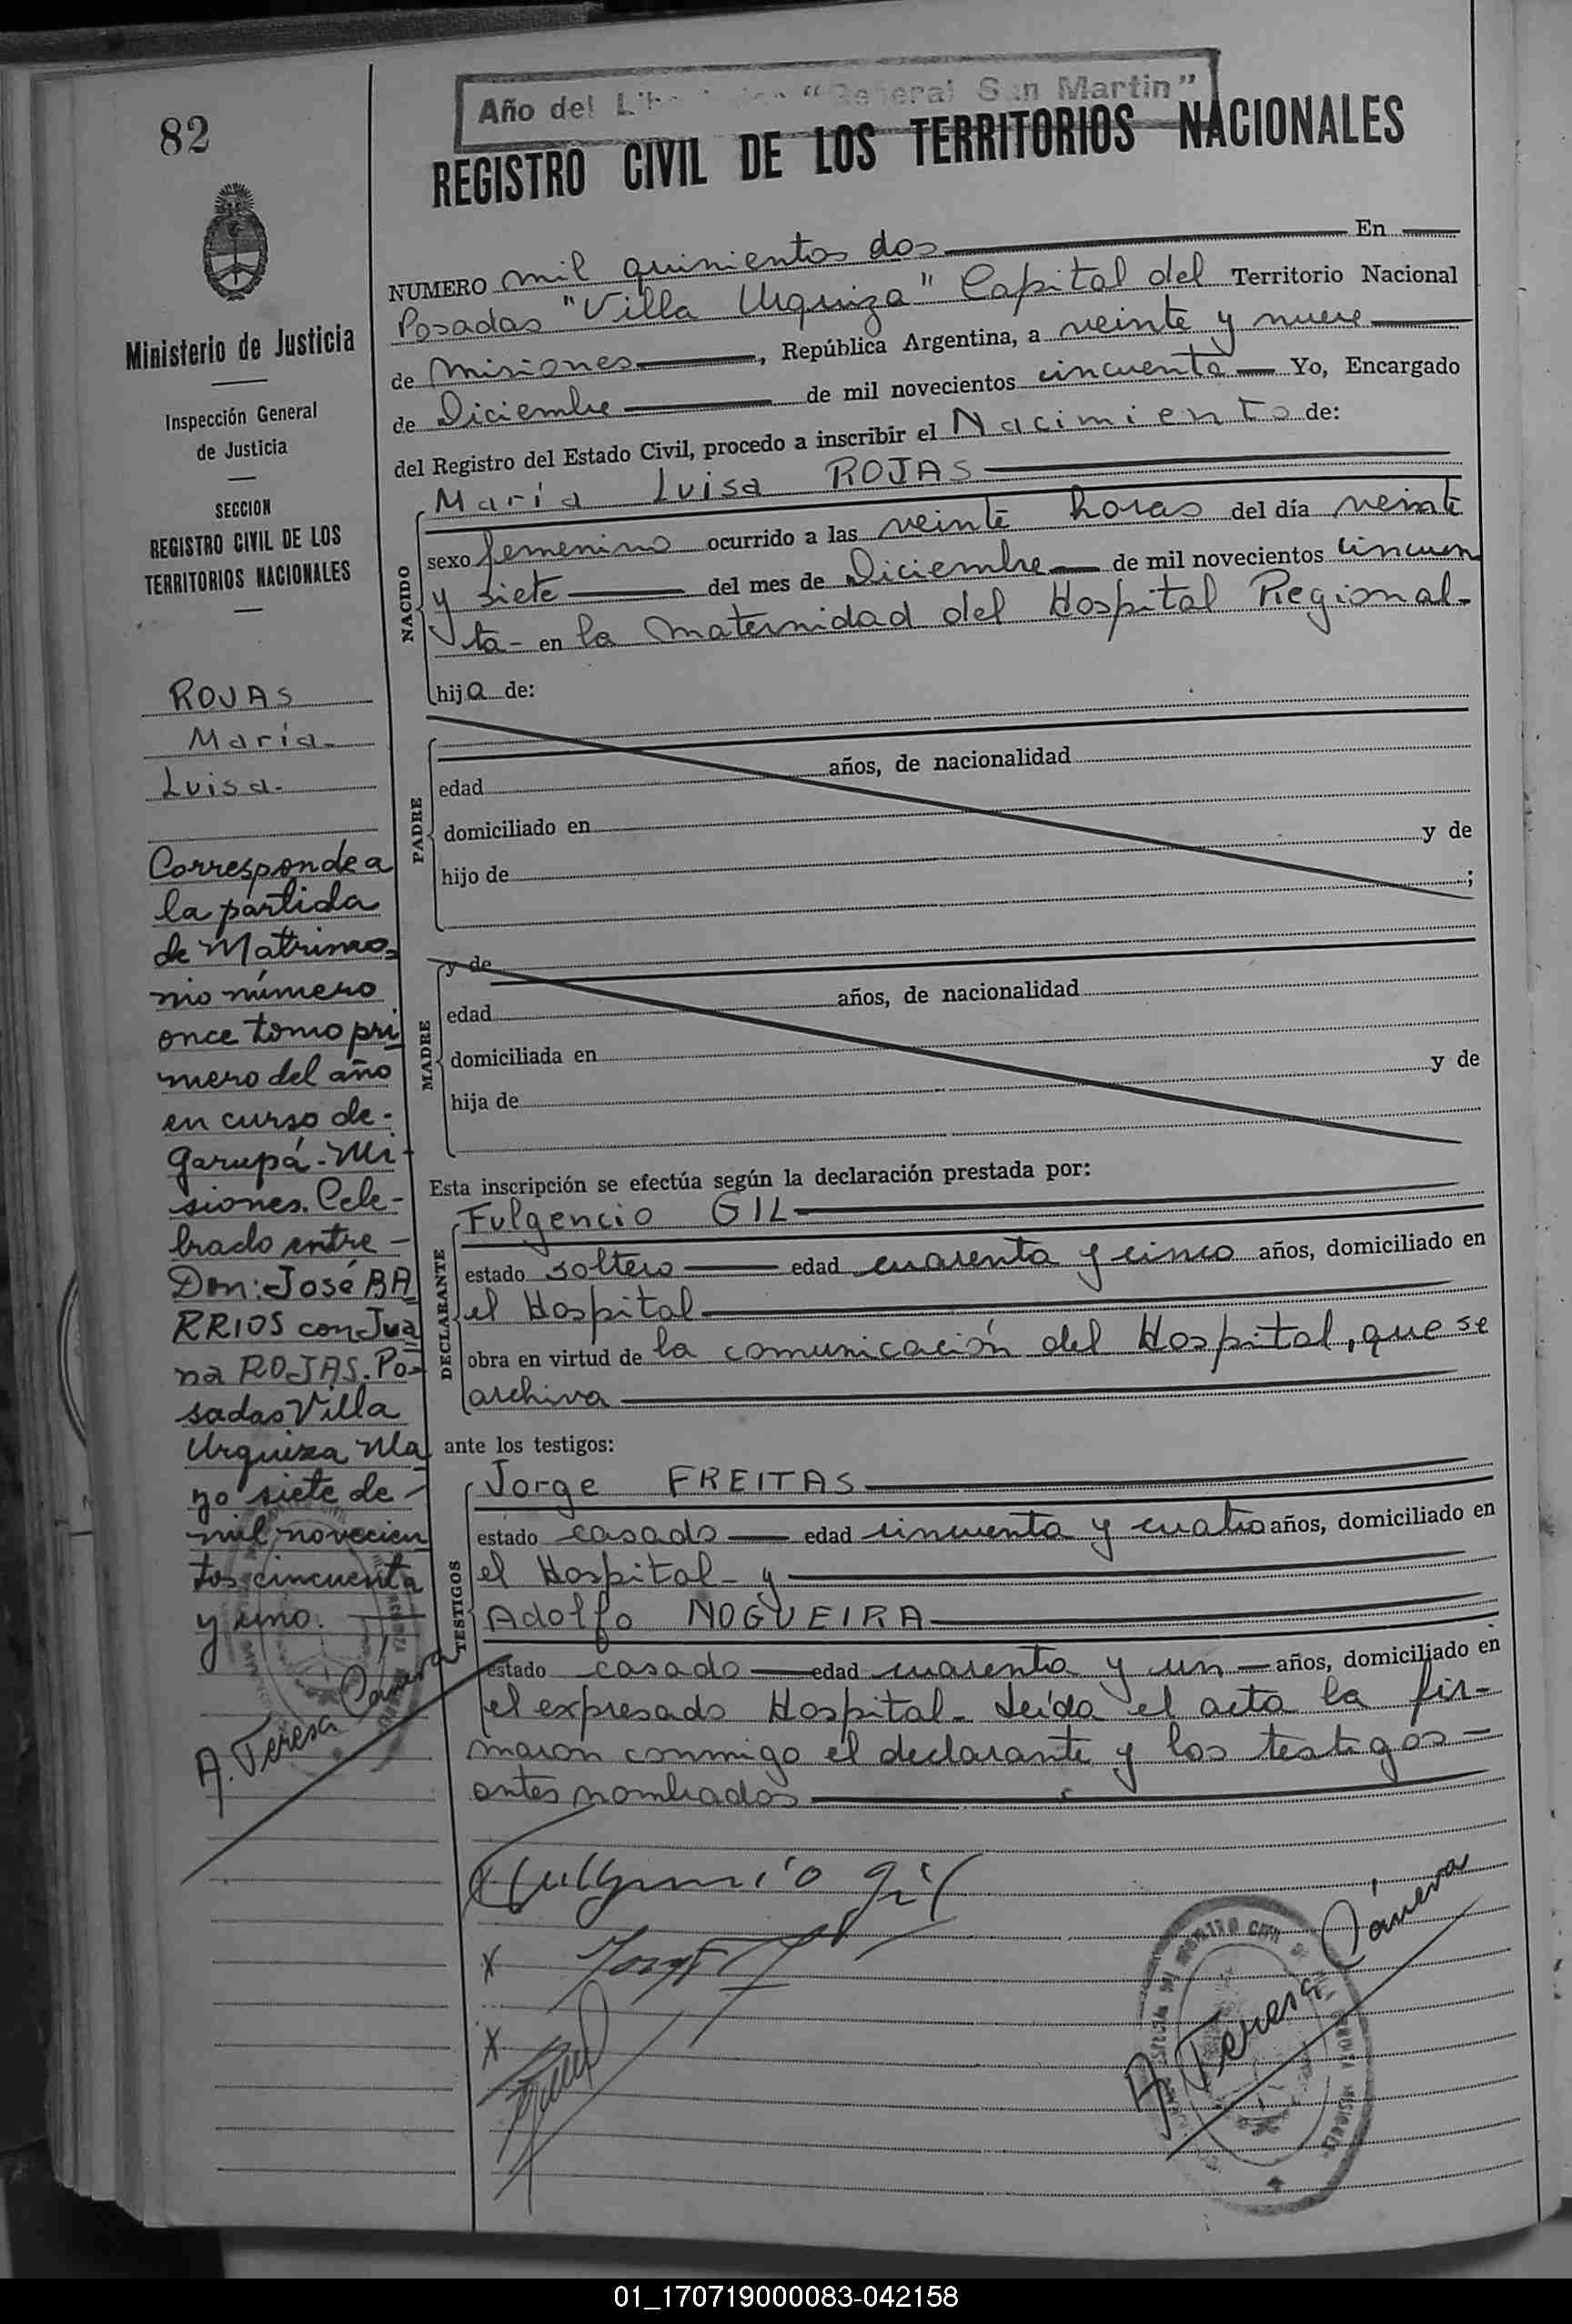 82
Año del "General San Martin"
REGISTRO CIVIL DE LOS TERRITORIOS NACIONALES
Ministerio de Justicia
Inspección General
de Justicia
SECCION
REGISTRO CIVIL DE LOS
TERRITORIOS NACIONALES
ROJAS
María
Luisa
Corresponde a
la partida
de Matrimo=
nio número
once tomo pri
mero del año
en curso de-
Garupá-Mi-
siones. Cele-
brado entre-
Don: José BA
RRIOS con Jua
na ROJAS. Po=
sadas Villa
Urquiza Ma
yo siete de-
mil novecien
tos cincuenta
y uno.
A. Teresa Cánera
NUMERO mil quinientos dos En
Posadas "Villa Urquiza" Capital del Territorio Nacional
de Misiones, República Argentina, a veinte y nueve
de Diciembre de mil novecientos cincuenta Yo, Encargado
del Registro del Estado Civil, procedo a inscribir el Nacimiento de:
NACIDO
María Luisa ROJAS
sexo femenino ocurrido a las veinte horas del día veinte
y siete del mes de Diciembre de mil novecientos cincuen
ta- en la Maternidad del Hospital Regional-
hija de:
PADRE
edad años, de nacionalidad
domiciliado en
hijo de y de
;
MADRE
y de
edad años, de nacionalidad
domiciliada en
hija de y de
Esta inscripción se efectúa según la declaración prestada por:
DECLARANTE
Fulgencio GIL
estado soltero edad cuarenta y cinco años, domiciliado en
el Hospital
obra en virtud de la comunicación del Hospital, que se
archiva
ante los testigos:
TESTIGOS
Jorge FREITAS
estado casado edad cincuenta y cuatro años, domiciliado en
el Hospital- y
Adolfo NOGUEIRA
estado casado edad cuarenta y un años, domiciliado en
el expresado Hospital- Leída el acta la fir-
maron conmigo el declarante y los testigos=
antes nombrados
Fulgencio Gil
x
x
A. Teresa Cánera
01_170719000083-042158